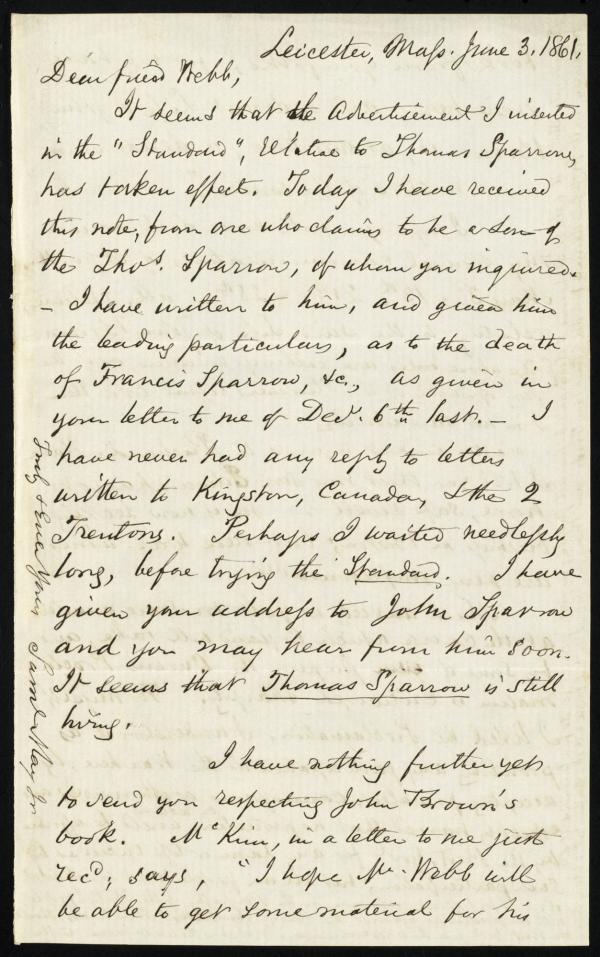 Leicester, Mass. June 3. 1861.
Dear friend Webb,
It seems that the Advertisement I inserted
in the "Standard", relative to Thomas Sparrow,
has taken effect. Today I have received
this note, from one who claims to be a Son of
the Thos. Sparrow, of whom you inquired.
- I have written to him, and given him
the leading particulars, as to the death
of Francis Sparrow, &c., as given in
your letter to me of Decr. 6th last. - I
have never had any reply to letters
written to Kingston, Canada, & the 2
Trentons. Perhaps I waited needlessly
long, before trying the Standard. I have
given your address to John Sparrow
and you may hear from him soon.
It seems that Thomas Sparrow is still
living.
I have nothing further yet
to send you respecting John Brown's
book. McKim, in a letter to me just
recd, says, "I hope Mr. Webb will
be able to get some material for his
Truly & Ever Yours Saml. May Jr